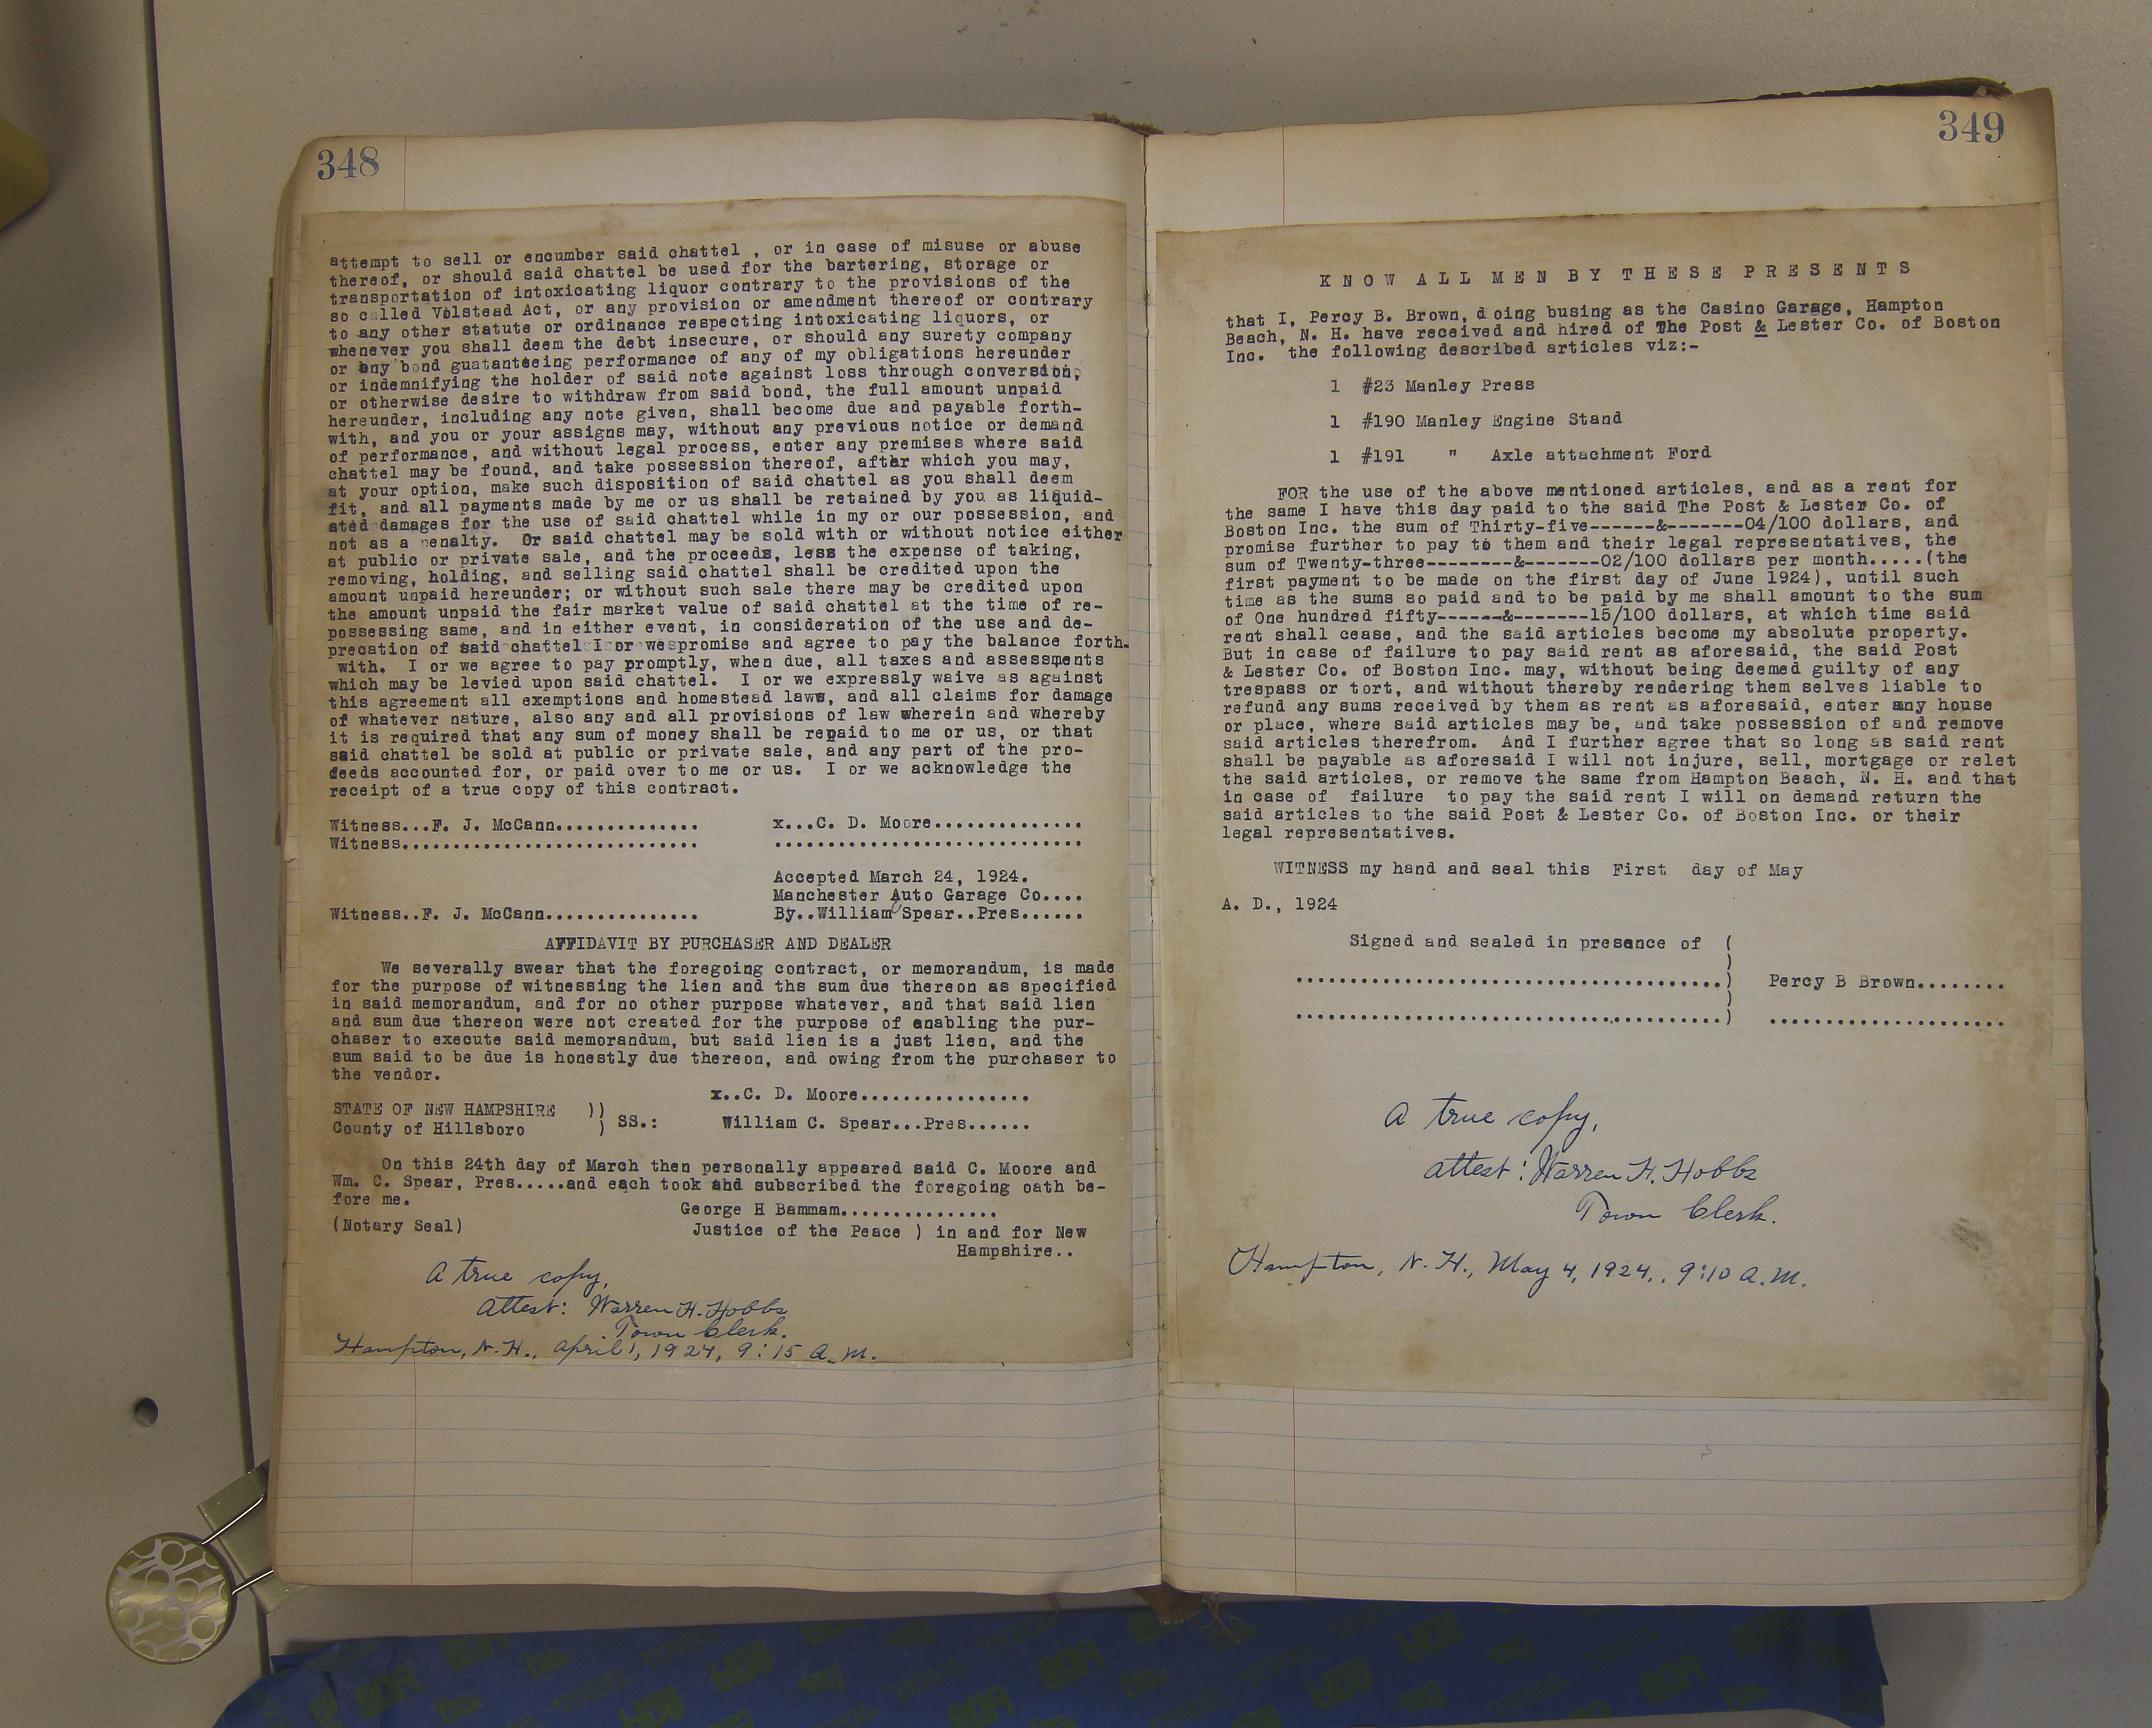 348
attempt to sell or encumber said chattel , or in case of misuse or abuse
thereof, or should said chattel be used for the bartering, storage or
transportation of intoxicating liquor contrary to the provisions of the
so called Volstead Act, or any provision or amendment thereof or contrary
to any other statute or ordinance respecting intoxicating liquors, or
whenever you shall deem the debt insecure, or should any surety company
or any bond guatanteeing performance of any of my obligations hereunder
or indemnifying the holder of said note against loss through conversion,
or otherwise desire to withdraw from said bond, the full amount unpaid
hereunder, including any note given, shall become due and payable forth-
with, and you or your assigns may, without any previous notice or demand
of performance, and without legal process, enter any premises where said
chattel may be found, and take possession thereof, after which you may,
at your option, make such disposition of said chattel as you shall deem
fit, and all payments made by me or us shall be retained by you as liquid-
ated damages for the use of said chattel while in my or our possession, and
not as a penalty. Or said chattel may be sold with or without notice either
at public or private sale, and the proceeds, less the expense of taking,
removing, holding, and selling said chattel shall be credited upon the
amount unpaid hereunder; or without such sale there may be credited upon
the amount unpaid the fair market value of said chattel at the time of re-
possessing same, and in either event, in consideration of the use and de-
precation of said chattel I or we promise and agree to pay the balance forth-
with. I or we agree to pay promptly, when due, all taxes and assessments
which may be levied upon said chattel. I or we expressly waive as against
this agreement all exemptions and homestead laws, and all claims for damage
of whatever nature, also any and all provisions of law wherein and whereby
it is required that any sum of money shall be repaid to me or us, or that
said chattel be sold at public or private sale, and any part of the pro-
ceeds accounted for, or paid over to me or us. I or we acknowledge the
receipt of a true copy of this contract.
Witness...F. J. McCann.............. x...C. D. Moore..............
Witness............................ .............................
Accepted March 24, 1924.
Manchester Auto Garage Co....
Witness..F. J. McCann............... By..William C Spear..Pres......
AFFIDAVIT BY PURCHASER AND DEALER
We severally swear that the foregoing contract, or memorandum, is made
for the purpose of witnessing the lien and ths sum due thereon as specified
in said memorandum, and for no other purpose whatever, and that said lien
and sum due thereon were not created for the purpose of enabling the pur-
chaser to execute said memorandum, but said lien is a just lien, and the
sum said to be due is honestly due thereon, and owing from the purchaser to
the vendor.
x..C. D. Moore................
STATE OF NEW HAMPSHIRE ))
County of Hillsboro ) SS.: William C. Spear...Pres......
On this 24th day of March then personally appeared said C. Moore and
Wm. C. Spear, Pres.....and each took and subscribed the foregoing oath be-
fore me.
George H Bammam...............
(Notary Seal) Justice of the Peace ) in and for New
Hampshire..
A true copy,
attest: Warren H. Hobbs
Town Clerk.
Hampton, N. H., April 1, 1924, 9:15 A.M.
349
KNOW ALL MEN BY THESE PRESENTS
that I, Percy B. Brown, d oing busing as the Casino Garage, Hampton
Beach, N. H. have received and hired of The Post & Lester Co. of Boston
Inc. the following described articles viz:-
1 #23 Manley Press
1 #190 Manley Engine Stand
1 #191 " Axle attachment Ford
FOR the use of the above mentioned articles, and as a rent for
the same I have this day paid to the said The Post & Lester Co. of
Boston Inc. the sum of Thirty-five------&-------04/100 dollars, and
promise further to pay to them and their legal representatives, the
sum of Twenty-three--------&-------02/100 dollars per month.....(the
first payment to be made on the first day of June 1924), until such
time as the sums so paid and to be paid by me shall amount to the sum
of One hundred fifty------&-------15/100 dollars, at which time said
rent shall cease, and the said articles become my absolute property.
But in case of failure to pay said rent as aforesaid, the said Post
& Lester Co. of Boston Inc. may, without being deemed guilty of any
trespass or tort, and without thereby rendering them selves liable to
refund any sums received by them as rent as aforesaid, enter any house
or place, where said articles may be, and take possession of and remove
said articles therefrom. And I further agree that so long as said rent
shall be payable as aforesaid I will not injure, sell, mortgage or relet
the said articles, or remove the same from Hampton Beach, N. H. and that
in case of failure to pay the said rent I will on demand return the
said articles to the said Post & Lester Co. of Boston Inc. or their
legal representatives.
WITNESS my hand and seal this First day of May
A. D., 1924
Signed and sealed in presence of (
.........................................) Percy B Brown........
.........................................) ......................
A true copy,
attest: Warren H. Hobbs
Town Clerk.
Hampton, N. H., May 4, 1924,, 9:10 A.M.